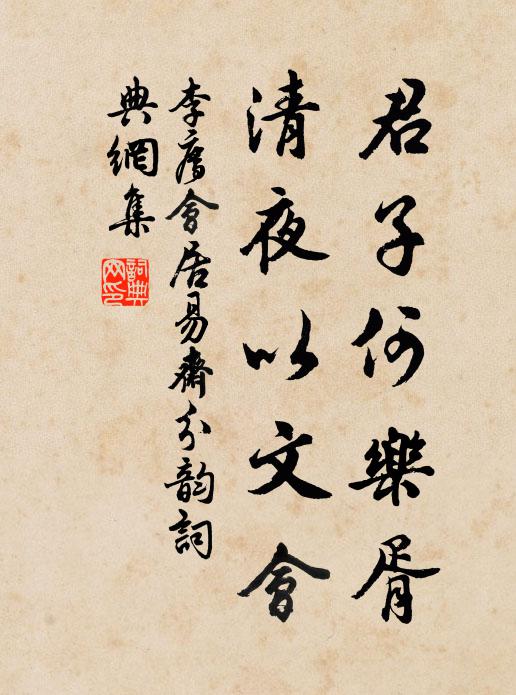 君子何樂胥
清夜以文會
李廌會居易齋分韵詞
典網集
詞典
网印